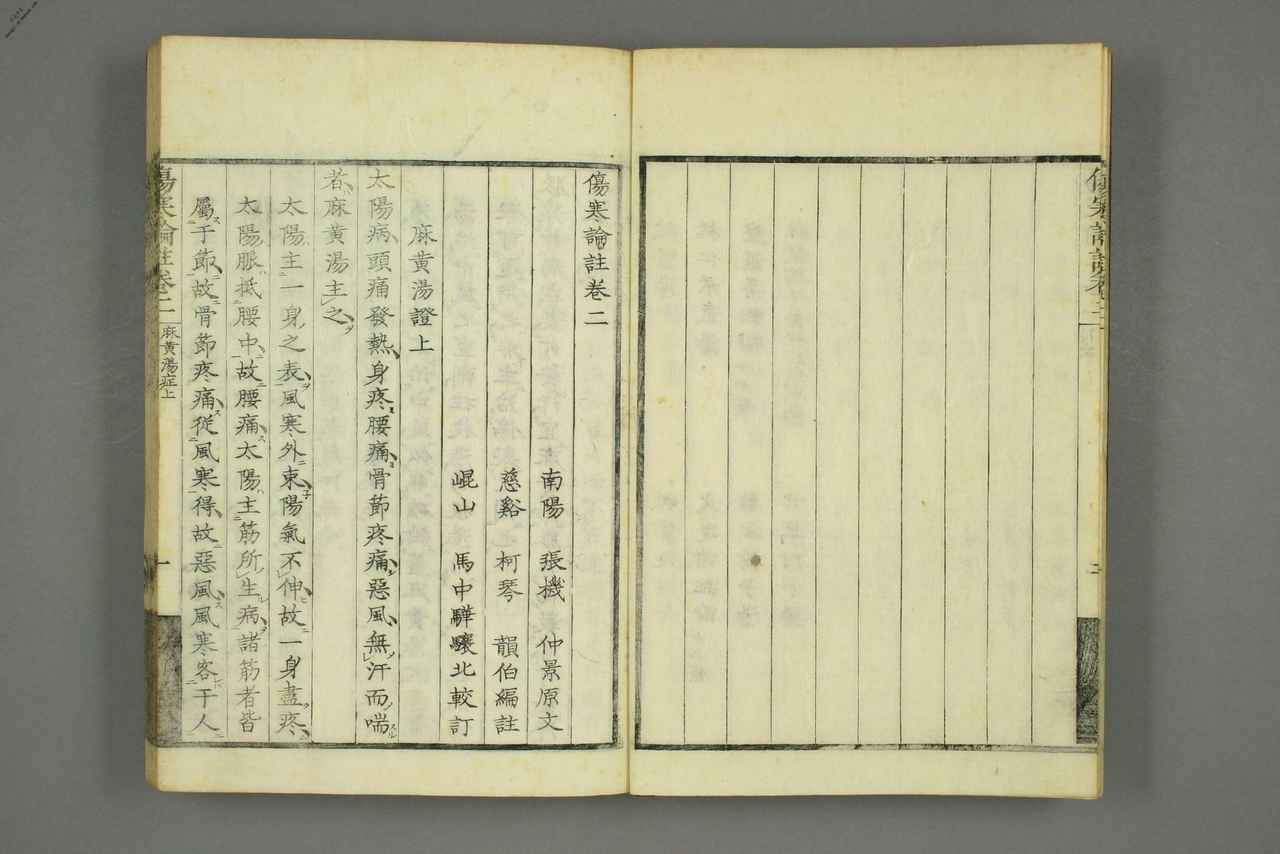 傷寒論註卷二
南陽 張機 仲景原文
慈谿 柯琴 韻伯編註
崐山 馬中驊驤北較訂
麻黃湯證上
太陽病頭痛發熱身疼腰痛骨節疼痛惡風無汗而喘
者麻黃湯主之
太陽主一身之表風寒外束陽氣不伸故一身盡疼
太陽脈抵腰中故腰痛太陽主筋所生病諸筋者皆
屬于節故骨節疼痛從風寒得故惡風風寒客于人
傷寒論註卷二 麻黃湯症上 一